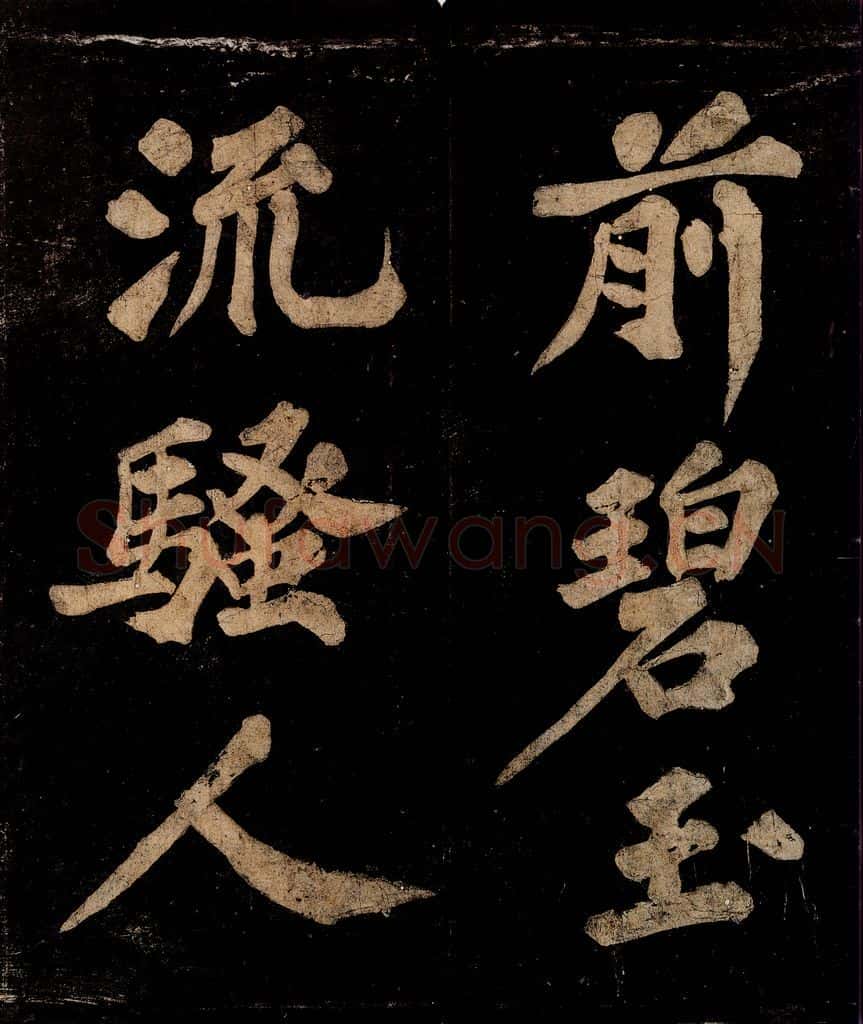 前碧玉
流騷人
Shufawang.CN